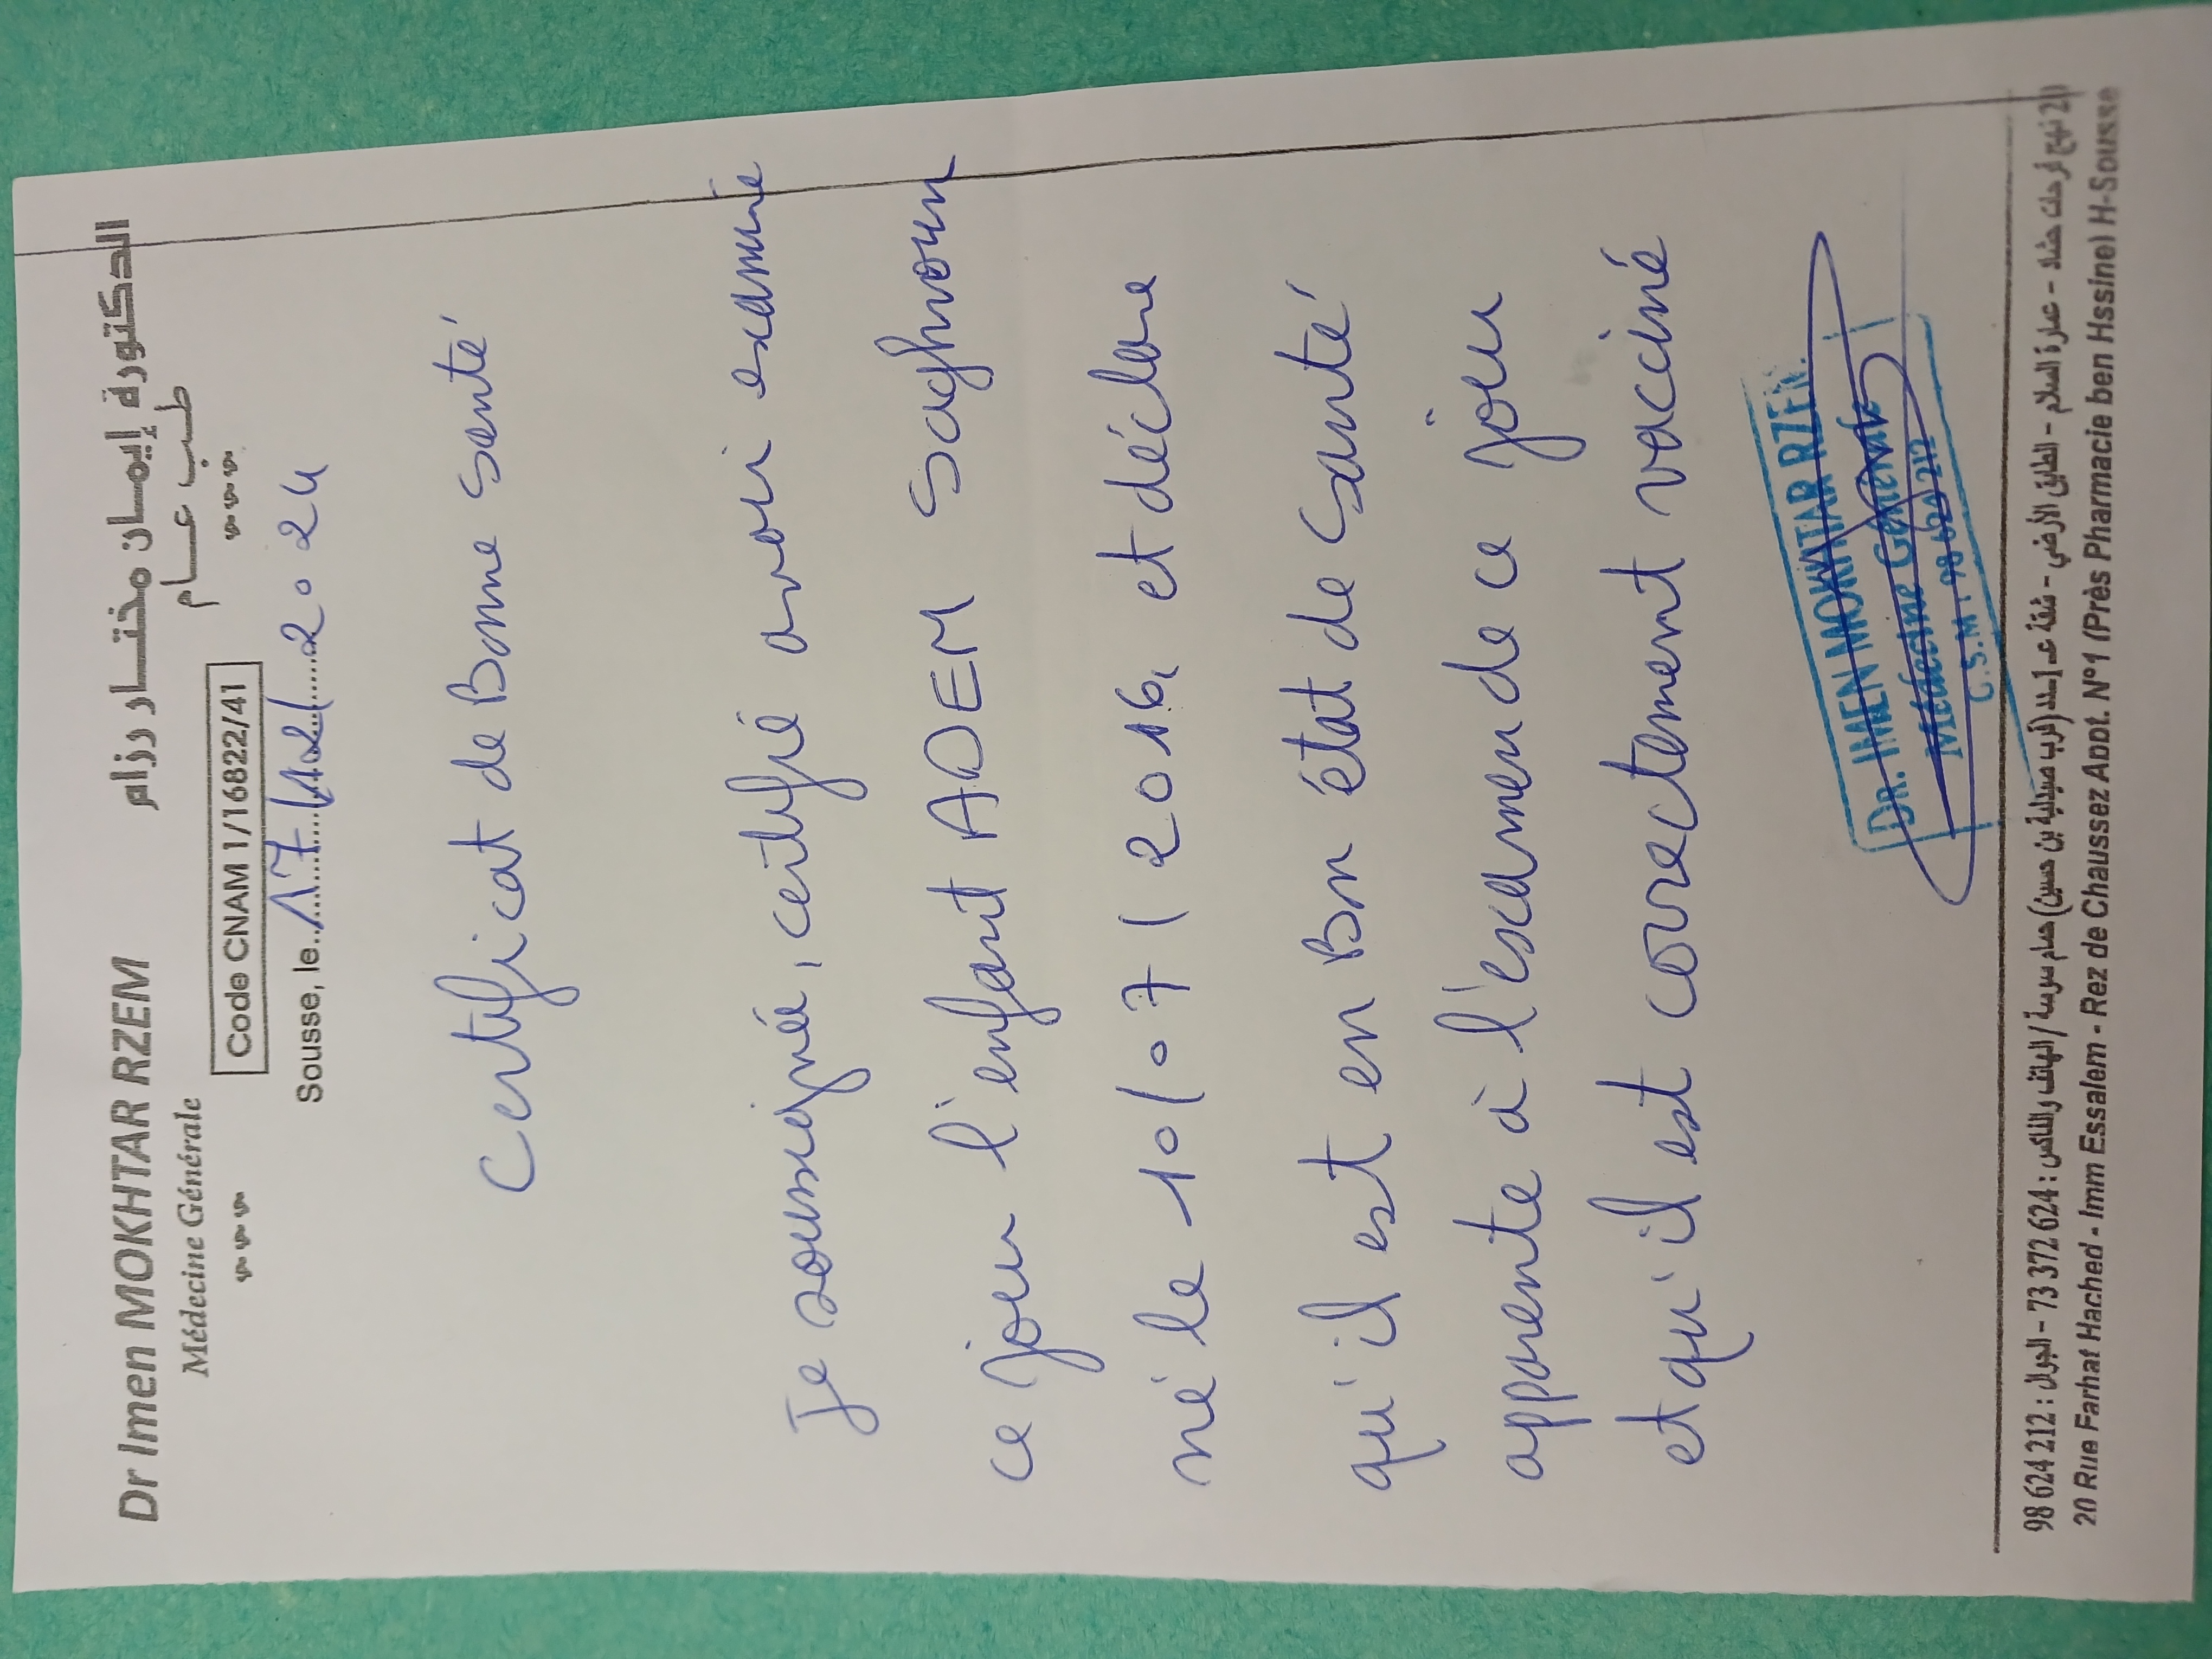 Dr Imen MOKHTAR RZEM
الدكتورة إيمان مختار رزام
Médecine Générale
طب عام
Code CNAM 1/16822/41
Sousse, le 17/12/2024
Certificat de Bonne santé
Je soussignée, certifié avoir examiné
ce jour l'enfant ADEM Saghroun
né le 10/07/2016, et déclare
qu'il est en Bon état de santé
apparente à l'examen de ce jour
et qu'il est correctement vacciné
DR. IMEN MOKHTAR RZEM
Médecine Générale
98 624 212
20 نهج فرحات حشاد - عمارة السلام - الطابق الأرضي - شقة عدد 1 (قرب صيدلية بن حسين) حمام سوسة / الهاتف والفاكس : 73 372 624 - الجوال : 98 624 212
20 Rue Farhat Hached - Imm Essalem - Rez de Chaussez Appt. N°1 (Près Pharmacie ben Hssine) H-Sousse